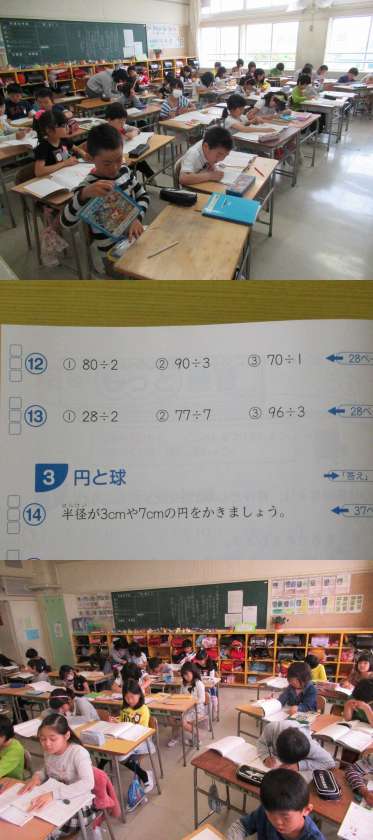 ⑫ ① 80÷2 ② 90÷3 ③ 70÷1 28ペー
⑬ ① 28÷2 ② 77÷7 ③ 96÷3 28ペ
3 円と球
「答え」
はんけい
⑭ 半径が3cmや7cmの円をかきましょう。 37ペ